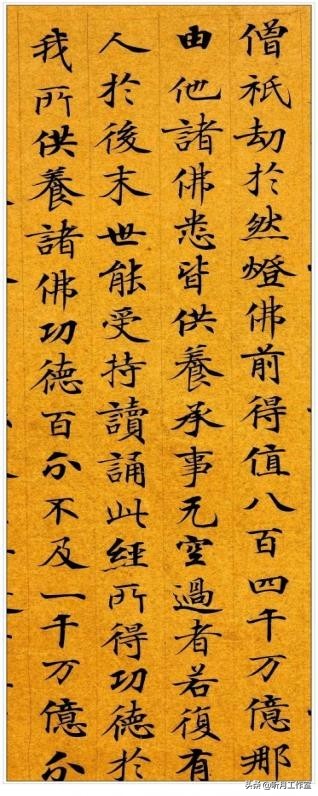 僧祇劫於然燈佛前得值八百四千万億那
由他諸佛悉皆供養承事无空過者若復有
人於後末世能受持讀誦此經所得功德於
我所供養諸佛功德百分不及一千万億分
头条@昕月工作室